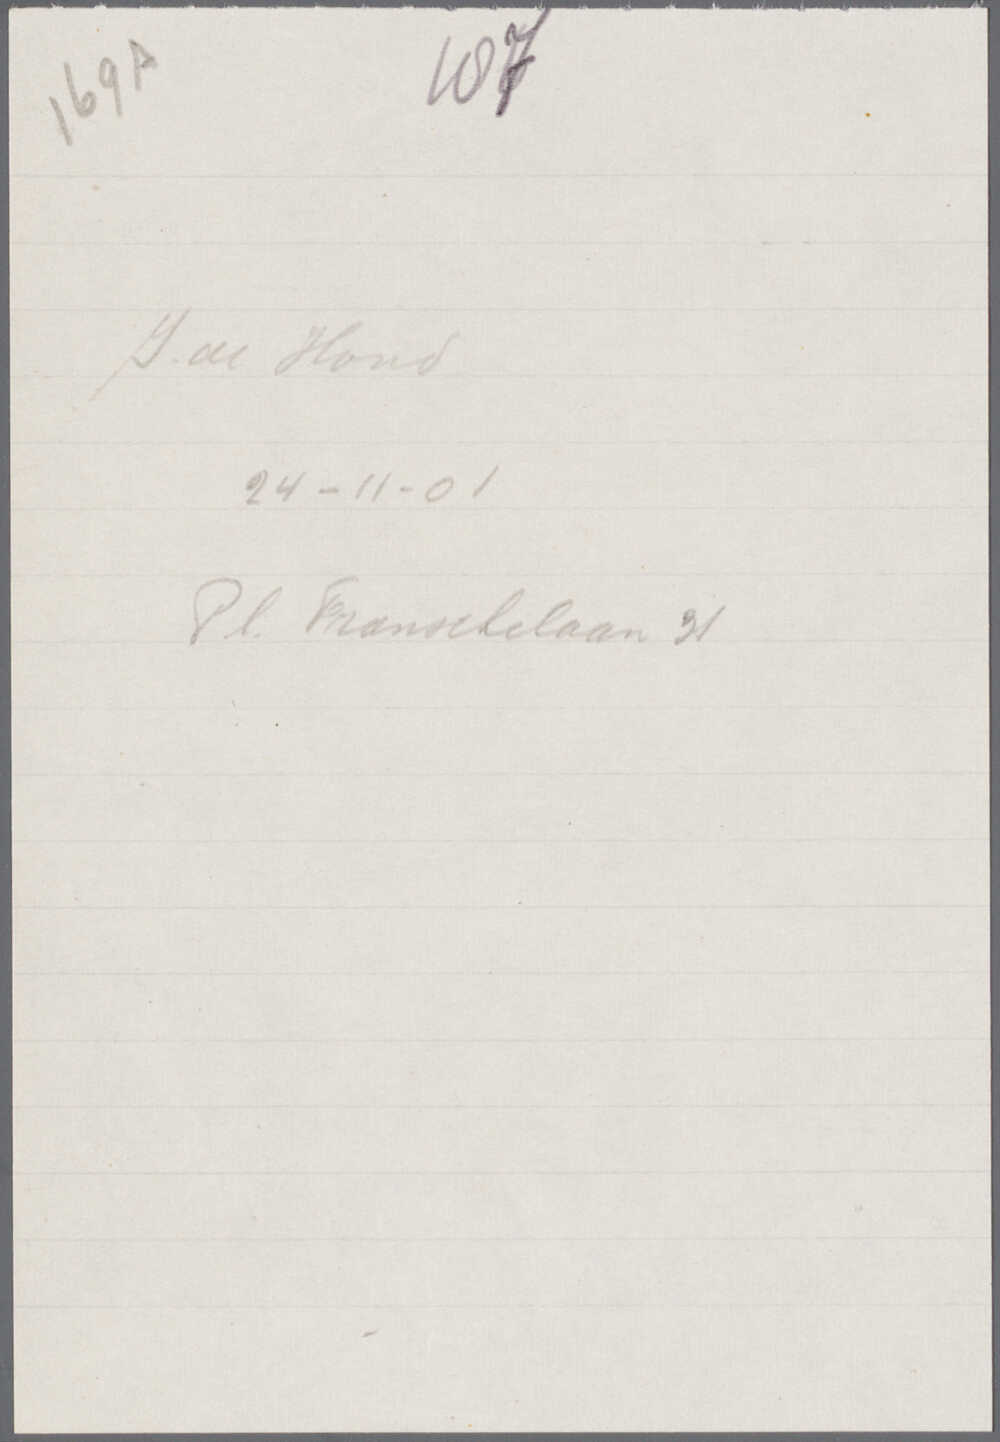 169A
107
J. de Hond
24-11-01
Pl. Franschelaan 31